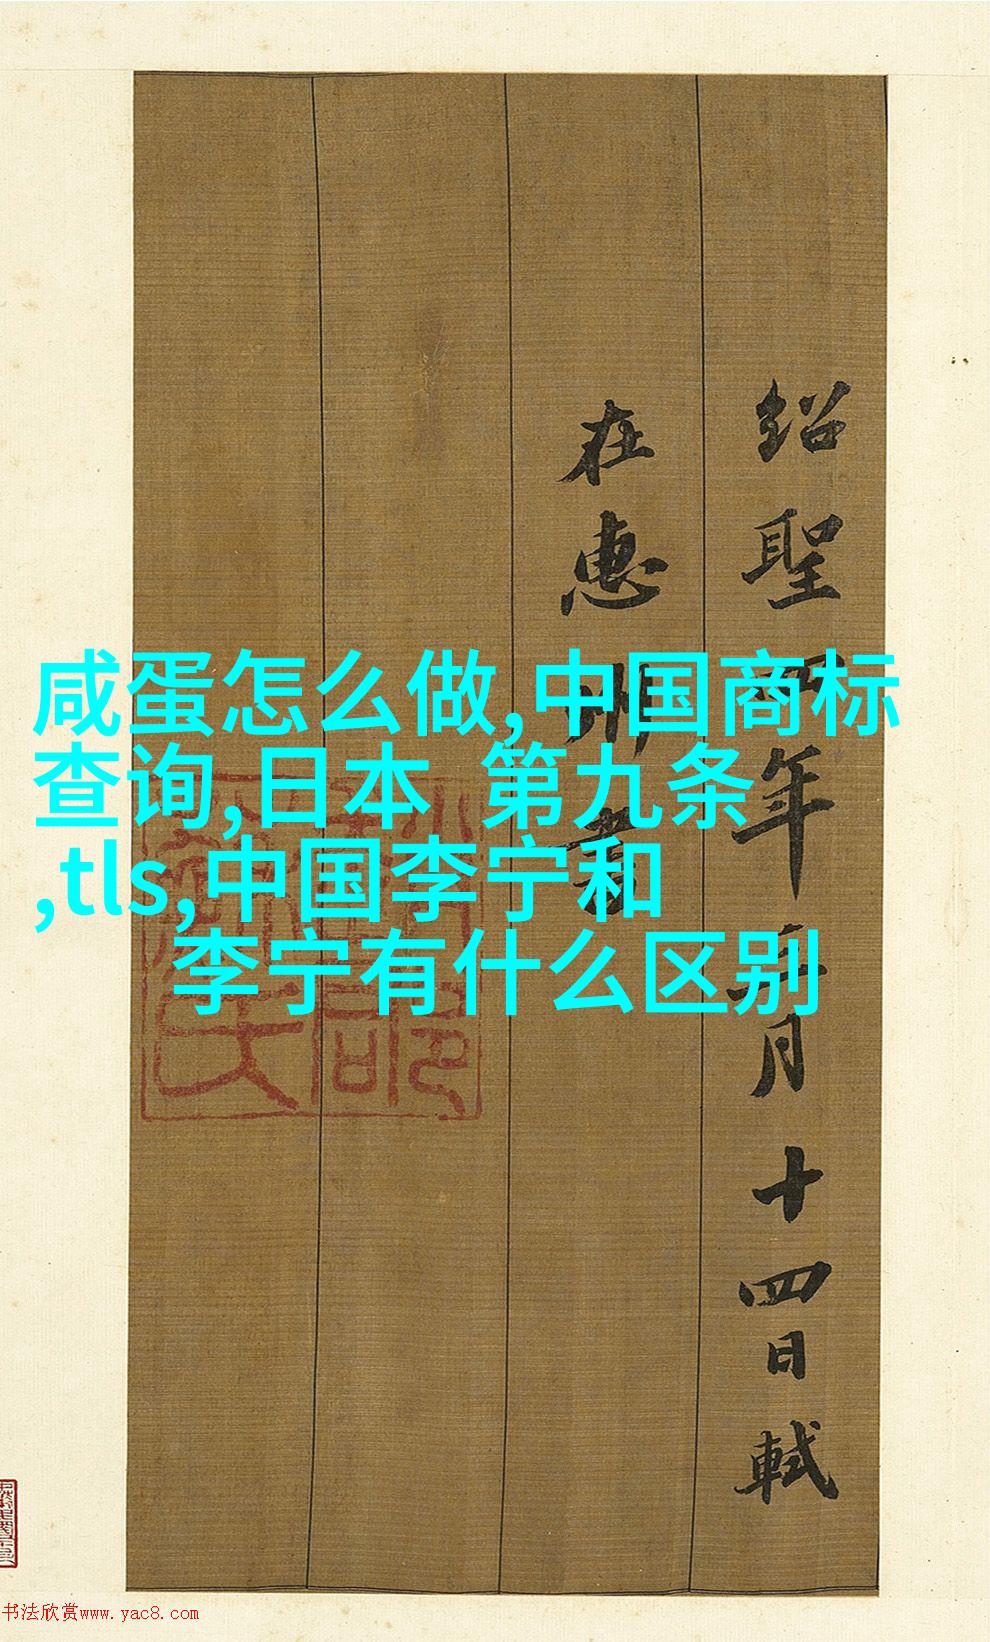 咸蛋怎么做,中国商标
查询,日本 第九条
,tls,中国李宁和
李宁有什么区别
绍聖四年二月十四日軾
在惠州書
书法欣赏www.yac8.com